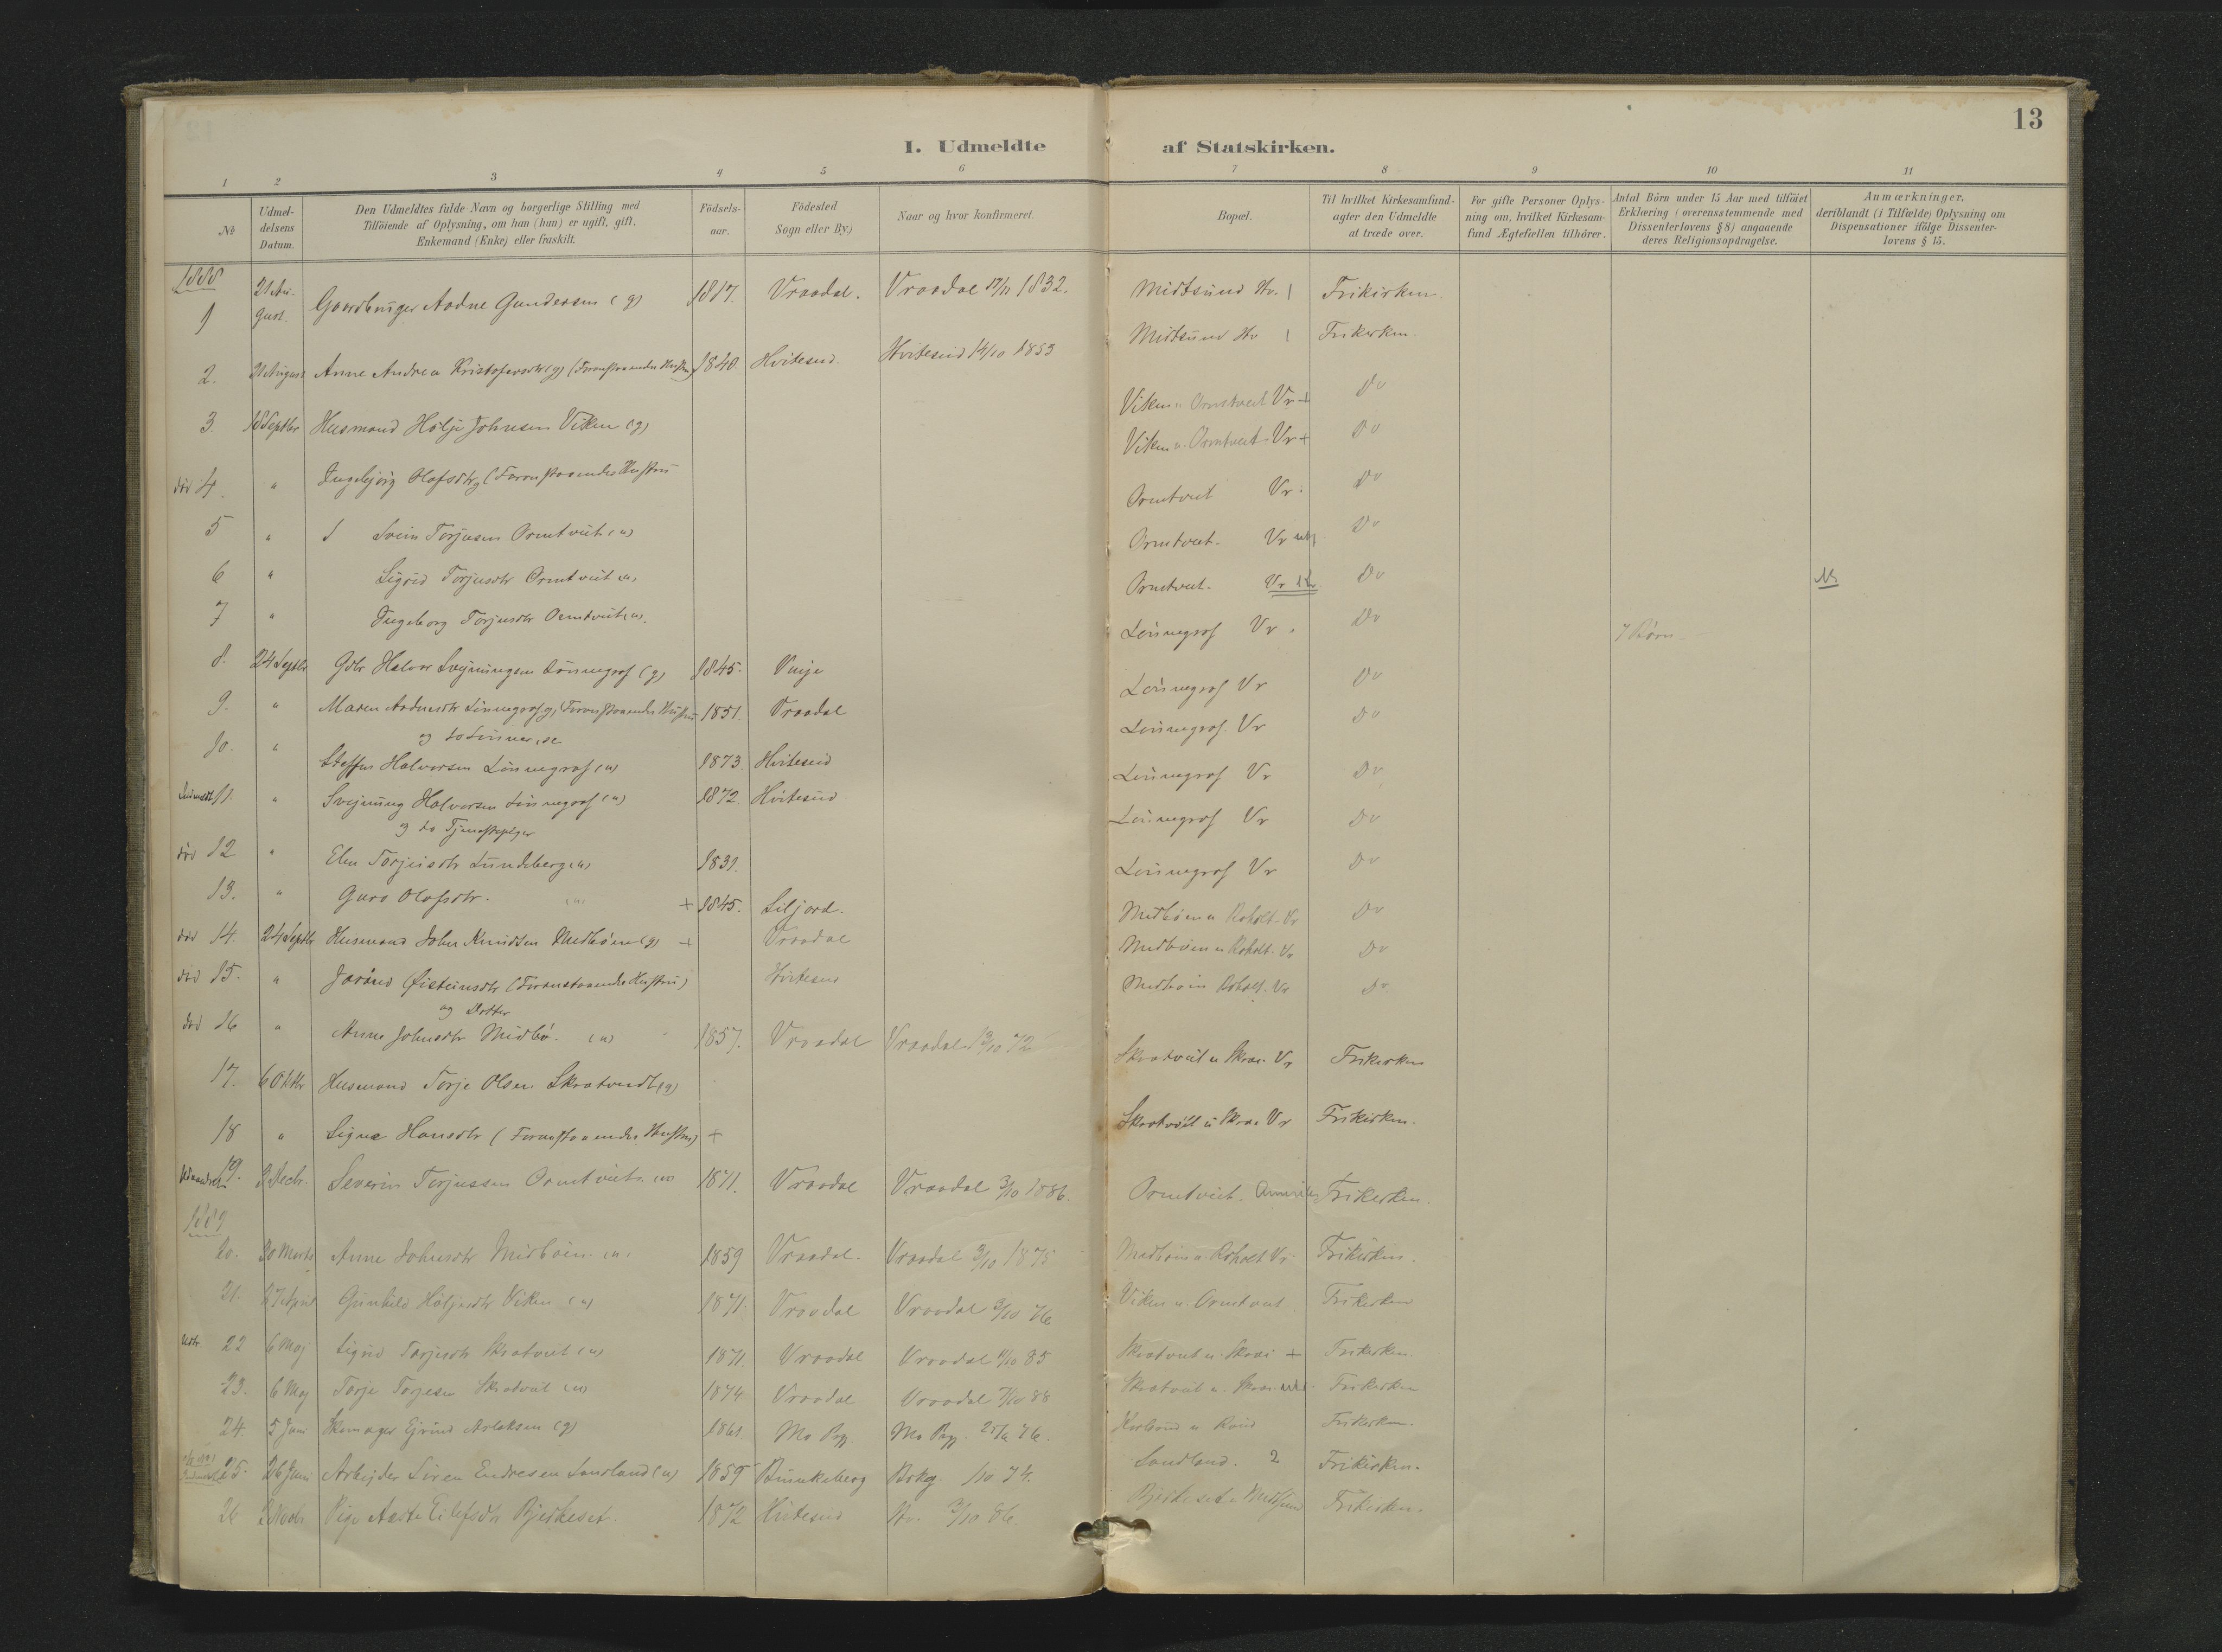 13
I. Udmeldte af Statskirken.
1 2 3 4 5 6 7 8 9 10 11
№
Udmel-
delsens
Datum.
Den Udmeldtes fulde Navn og borgerlige Stilling med
Tilföiende af Oplysning, om han (hun) er ugift, gift,
Enkemand (Enke) eller fraskilt.
Födsels-
aar.
Födested
Sogn eller By.)
Naar og hvor konfirmeret.
Bopæl.
Til hvilket Kirkesamfund
agter den Udmeldte
at træde over.
For gifte Personer Oplys-
ning om, hvilket Kirkesam-
fund Ægtefællen tilhörer.
Antal Börn under 15 Aar med tilföiet
Erklæring (overensstemmende med
Dissenterlovens § 8) angaaende
deres Religionsopdragelse.
Anmærkninger,
deriblandt (i Tilfælde) Oplysning om
Dispensationer ifölge Dissenter-
lovens § 15.
1888
1 21 Au-gust. Gaardbruger Aadne Gundersen (g) 1817. Vraadal. Vraadal 1832. Midtsund Hv. Frikirken.
2. 21 August Anne Andrea Kristofersdtr (g) (Foranstaaendes Hustru) 1840. Hviteseid. Hviteseid 14/10 1853 Midtsund Hv Frikirken.
3. 18 Septbr Husmand Hölje Johnsen Viken (g) Viken u. Ormtveit Vr + Do
död 4. " Ingebjörg Olafsdtr (Foranstaaendes Hustru Viken u. Ormtveit Vr + Do
5 " Svein Torjusen Ormtveit (u) Ormtveit Vr. Do
6 " Sigrid Torjusdtr Ormtveit (u) Ormtveit. Vr Do
7 " Ingeborg Torjusdtr Ormtveit (u). Ormtveit. Vr Do
8. 24 Septbr Gdbr Halvor Svejnungsen Lönnegrav (g) 1845. Vinje Lönnegrav Vr. Do 7 Börn
9. " Maren Aadnesdtr Lönnegrav (g) Foranstaaendes Hustru 1851. Vraadal Lönnegrav Vr Do
og to Sönner, se
10. " Steffen Halvorsen Lönnegrav (u) 1873. Hviteseid Lönnegrav. Vr Do
Indmeldt 11. " Svejnung Halvorsen Lönnegrav (u) 1872. Hviteseid Lönnegrav Vr Do
og to Tjenestepiger
död 12 " Elen Torjusdtr Lundeberg (u) 1831. Lönnegrav Vr Do
13. " Guro Olafsdtr. (u) + 1845. Siljord. Lönnegrav Vr Do
död 14. 24 Septbr Husmand John Knudsen Midböen (g) + Vraadal Midböen u Roholt. Vr Do
död 15. " Jorånd Öisteinsdtr (Foranstaaendes Hustru) Hviteseid Midböen u Roholt. Vr Do
og Datter
död 16 " Anne Johnsdtr Midbö. (u) 1857. Vraadal Vraadal 13/10 72 Midböen Roholt. Vr Do
17. 6 Oktbr Husmand Torje Olsen Skratveidt (g) Skratveit u Skrai Vr Frikirken
18 " Signe Hansdtr (Foranstaaendes Hustru) + Skratveit u Skrai Vr Frikirken.
Udvandret 19. 3 Decbr. Severin Torjussen Ormtveit (u) 1871. Vraadal Vraadal 3/10 1886. Ormtveit. Amerika Frikirken.
1889
20. 30 Marts Anne Johnsdtr Midböen. (u) 1859 Vraadal. Vraadal 3/10 1875 Midböen u. Roholt Vr. Frikirken.
21. 27 April Gunhild Höljesdtr Viken (u) 1871. Vraadal Vraadal 3/10 76 Viken u. Ormtveit Frikirken
22 6 Maj Sigrid Torjesdtr Skratveit (u) 1871. Vraadal Vraadal 11/10 85 Skratveit u. Skrai + Frikirken.
23. 6 Maj Torje Torjesen Skratveit (u) 1874 Vraadal Vraadal 7/10 88 Skratveit u. Skrai Frikirken
24. 5 Juni Skomager Ejvind Aslaksen (g) 1861. Mo Pgj Mo Pgj. 76. Frikirken.
25. 26 Juni Arbejder Sören Endresen Sandland (u) 1859 Brunkeberg Brkg. /10 74. Sandland. 2 Frikirken.
26 2 Novbr Pige Aaste Eilefsdtr Bjerkeset. 1872 Hviteseid Hv. 3/10 86. Bjerkeset u Midtsund Frikirken.